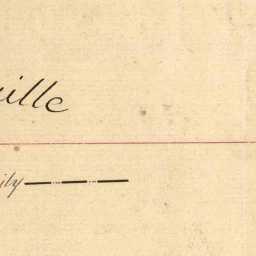 ille
ily